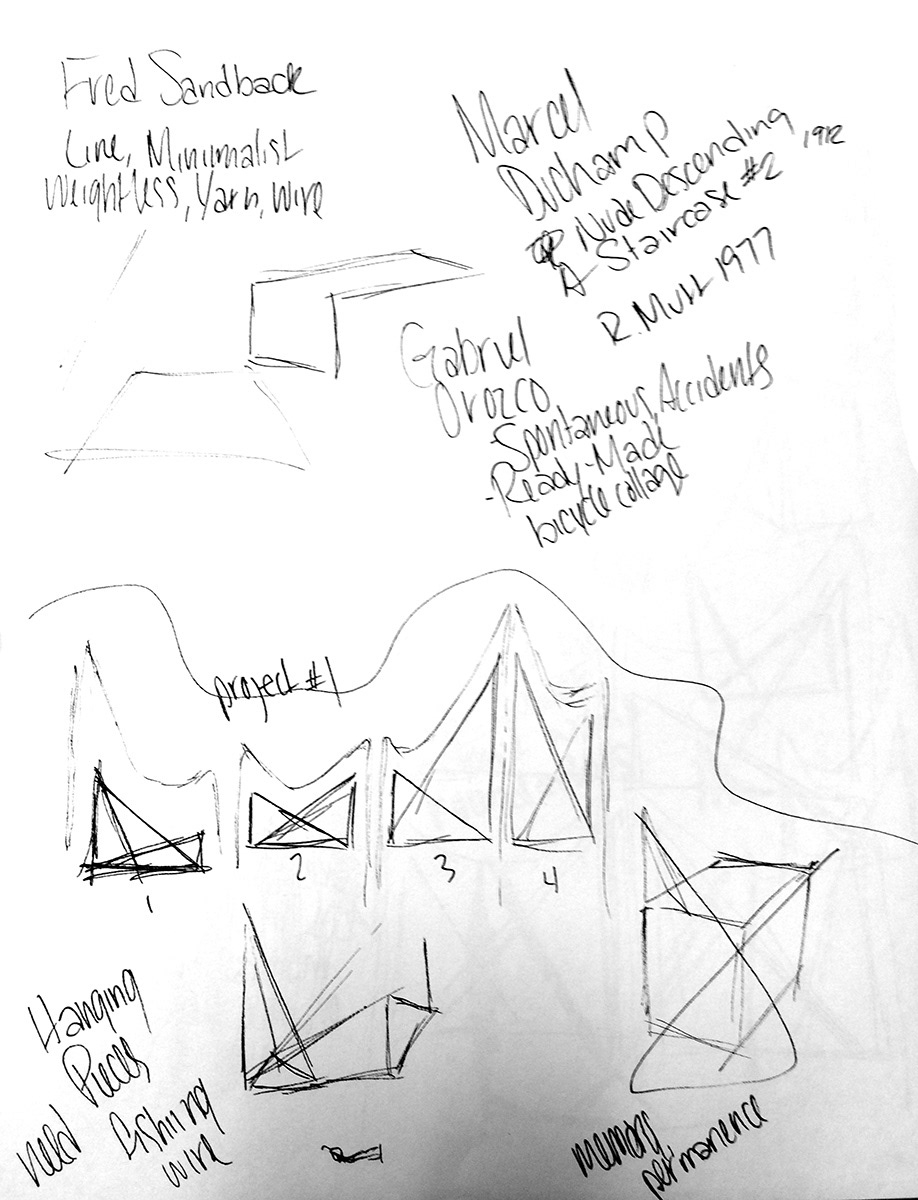 Fred Sandback
Line, Minimalist
Weightless, Yarn, Wire
Marcel
Duchamp
Nude Descending
A Staircase #2 1912
R. Mutt 1977
Gabriel
Orozco
-Spontaneous, Accidents
-Ready-Made
bicycle collage
project #1
1
2
3
4
Hanging
Pieces
need fishing
wire
memory,
permanence